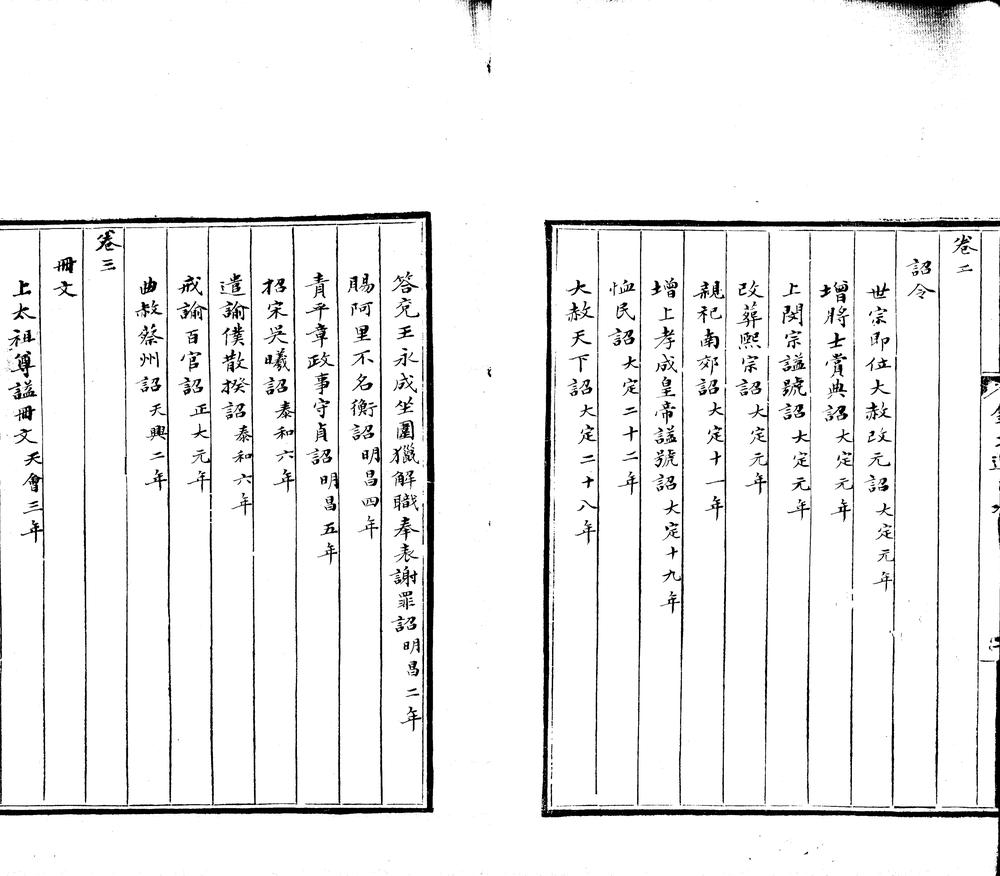 卷二
詔令
世宗即位大赦改元詔大定元年
增將士賞典詔大定元年
上閔宗謚號詔大定元年
改葬熙宗詔大定元年
親祀南郊詔大定十一年
增上孝成皇帝謚號詔大定十九年
恤民詔大定二十二年
大赦天下詔大定二十八年
答兖王永成坐圍獵解職奉表謝罪詔明昌二年
賜阿里不名衡詔明昌四年
責平章政事守貞詔明昌五年
招宋吳曦詔泰和六年
遣諭僕散揆詔泰和六年
戒諭百官詔正大元年
曲赦蔡州詔天興二年
卷三
冊文
上太祖尊謚冊文天會三年